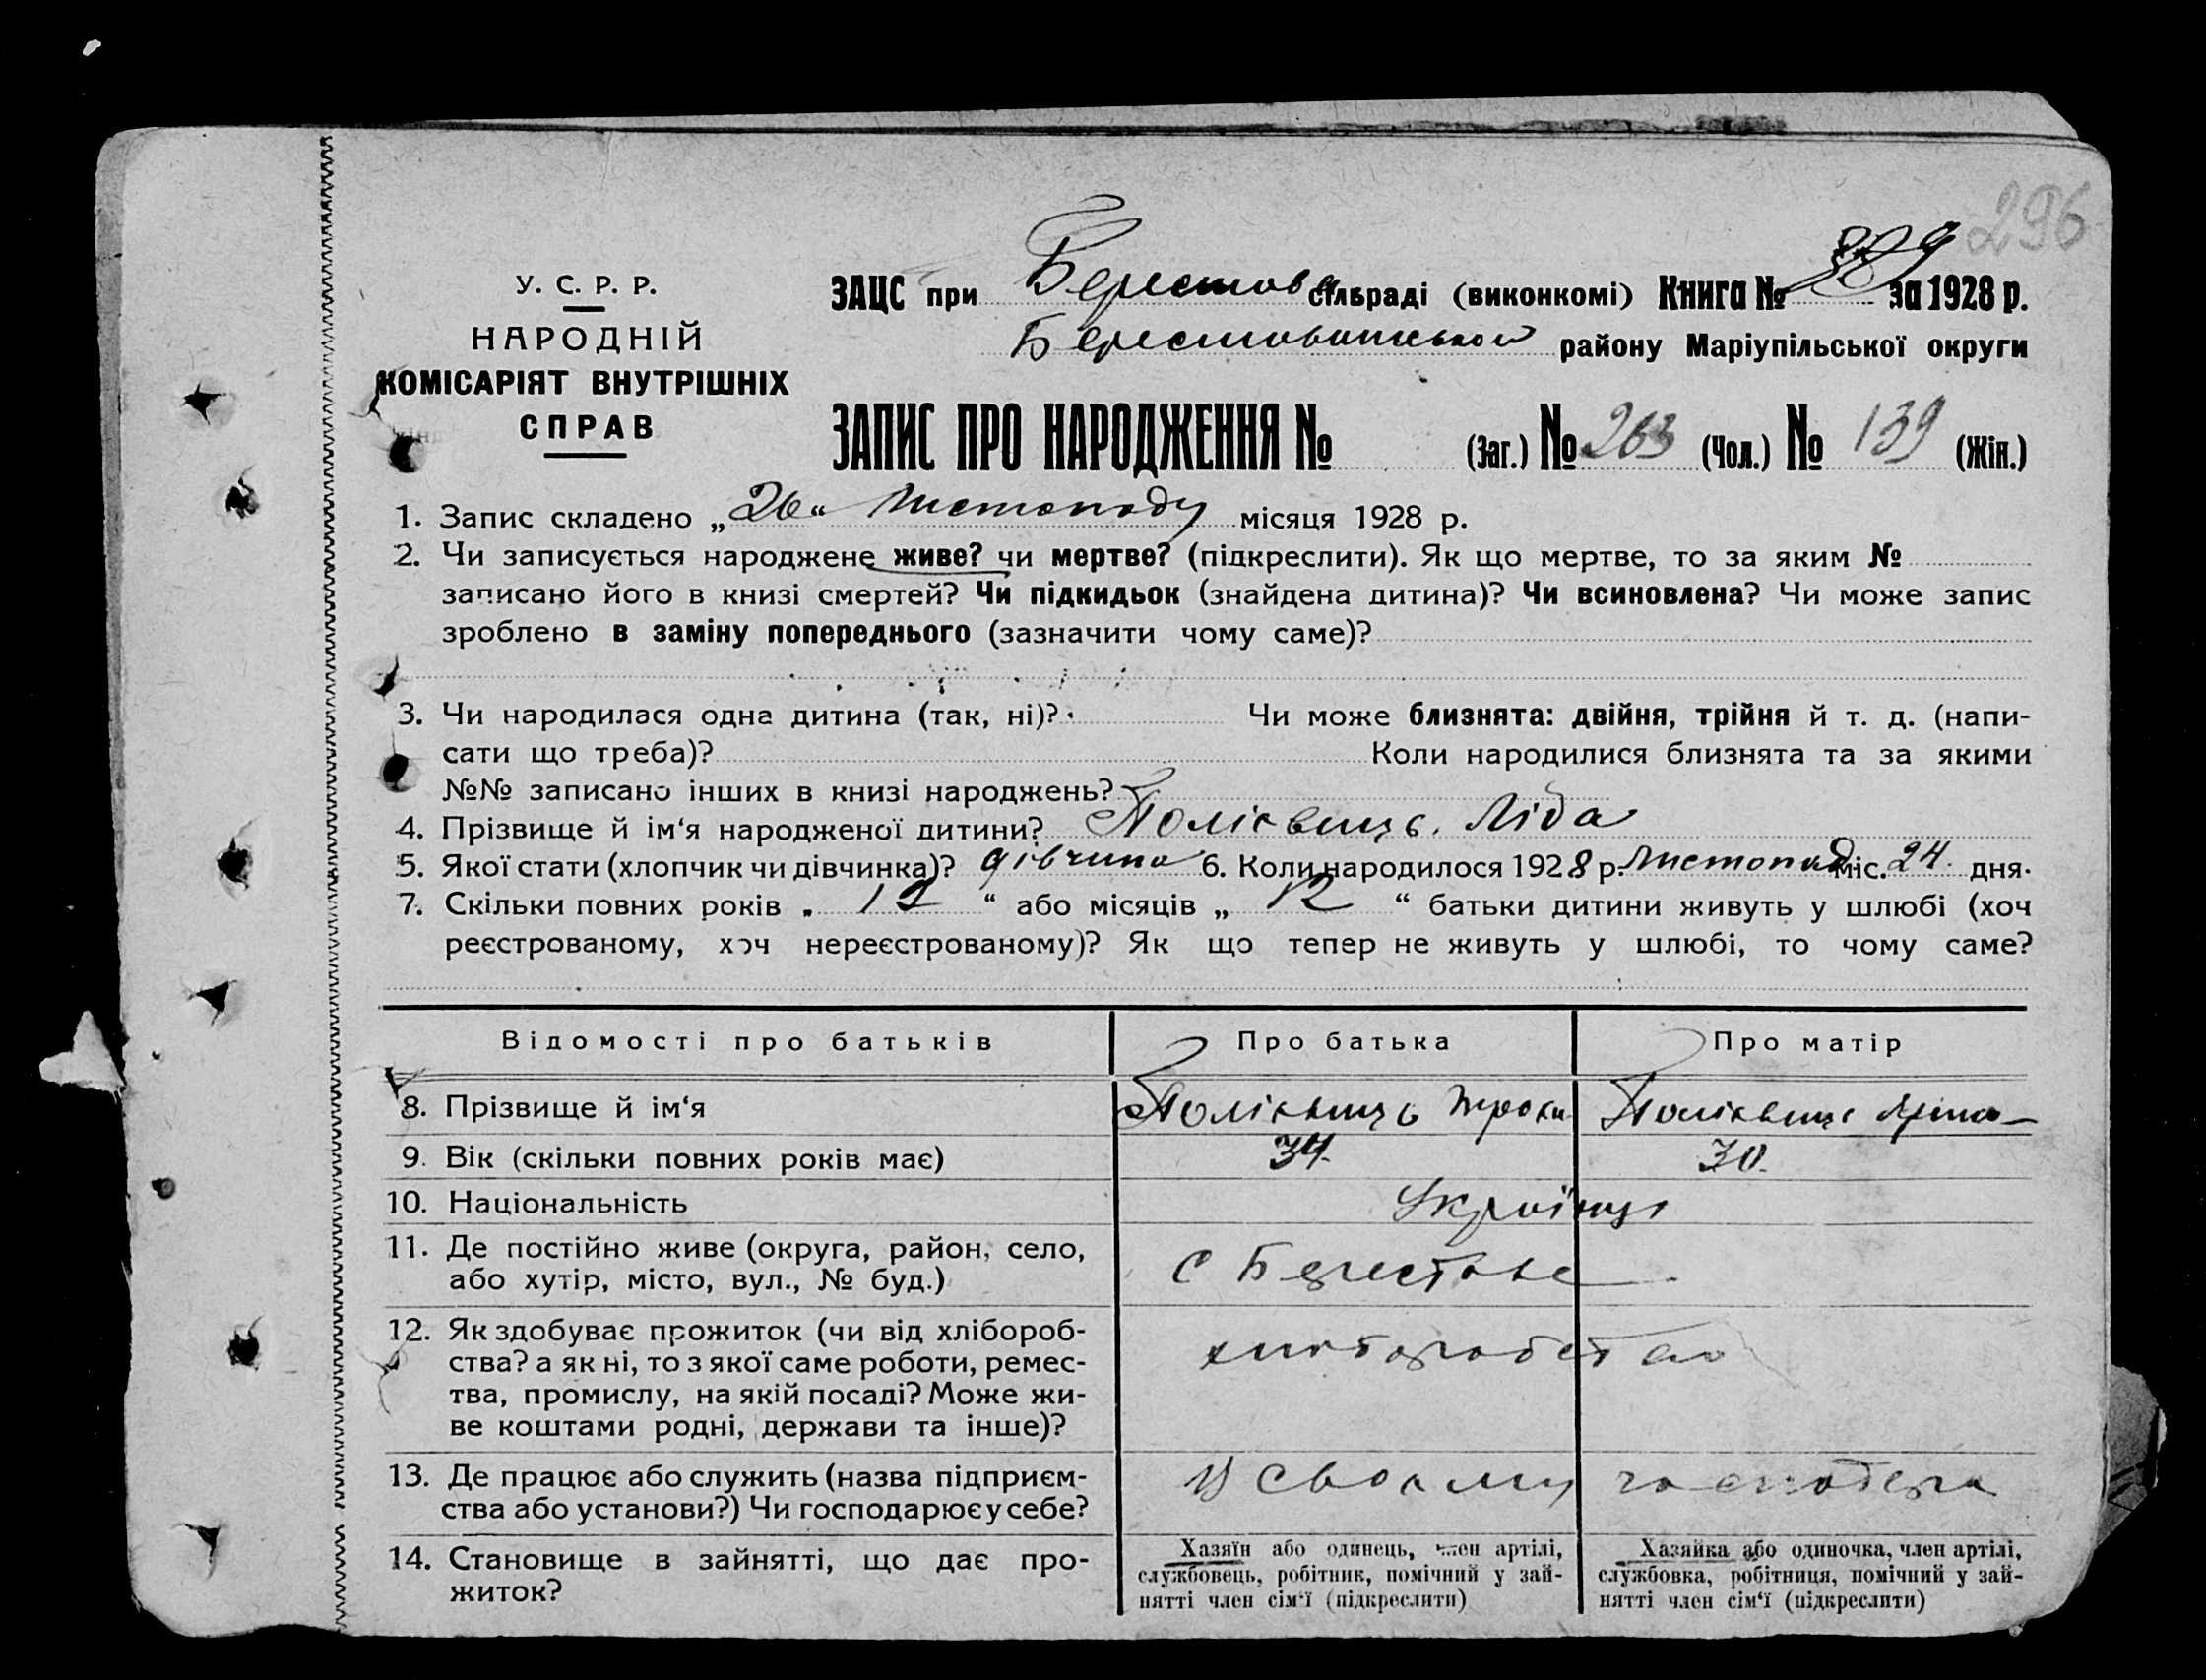 296
У. С. Р. Р.
НАРОДНІЙ
КОМІСАРІЯТ ВНУТРІШНІХ
СПРАВ
ЗАЦС при Берестов сільраді (виконкомі) Книга № за 1928 р.
району Маріупільської округи
ЗАПИС ПРО НАРОДЖЕННЯ № (Заг.) № 263 (Чол.) № 139 (Жін.)
1. Запис складено „26“ Листопаду місяця 1928 р.
2. Чи записується народжене живе? чи мертве? (підкреслити). Як що мертве, то за яким №
записано його в книзі смертей? Чи підкидьок (знайдена дитина)? Чи всиновлена? Чи може запис
зроблено в заміну попереднього (зазначити чому саме)?
3. Чи народилася одна дитина (так, ні)? Чи може близнята: двійня, трійня й т. д. (напи-
сати що треба)? Коли народилися близнята та за якими
№№ записано інших в книзі народжень?
4. Прізвище й ім‘я народженої дитини? Ліда
5. Якої стати (хлопчик чи дівчинка)? дівчина 6. Коли народилося 1928 р. Листопад міс. 24. дня.
7. Скільки повних років „ “ або місяців „ 12 “ батьки дитини живуть у шлюбі (хоч
реєстрованому, хоч нереєстрованому)? Як що тепер не живуть у шлюбі, то чому саме?
Відомості про батьків Про батька Про матір
8. Прізвище й ім‘я
9. Вік (скільки повних років має) 34. 30.
10. Національність Українці
11. Де постійно живе (округа, район, село,
або хутір, місто, вул., № буд.) с Берестове
12. Як здобуває прожиток (чи від хлібороб-
ства? а як ні, то з якої саме роботи, ремес-
тва, промислу, на якій посаді? Може жи-
ве коштами родні, держави та інше)?
13. Де працює або служить (назва підприєм-
ства або установи?) Чи господарює у себе? У своєму
14. Становище в зайнятті, що дає про-
житок?
Хазяїн або одинець, член артілі,
службовець, робітник, помічний у зай-
нятті член сім‘ї (підкреслити)
Хазяйка або одиночка, член артілі,
службовка, робітниця, помічний у зай-
нятті член сім‘ї (підкреслити)